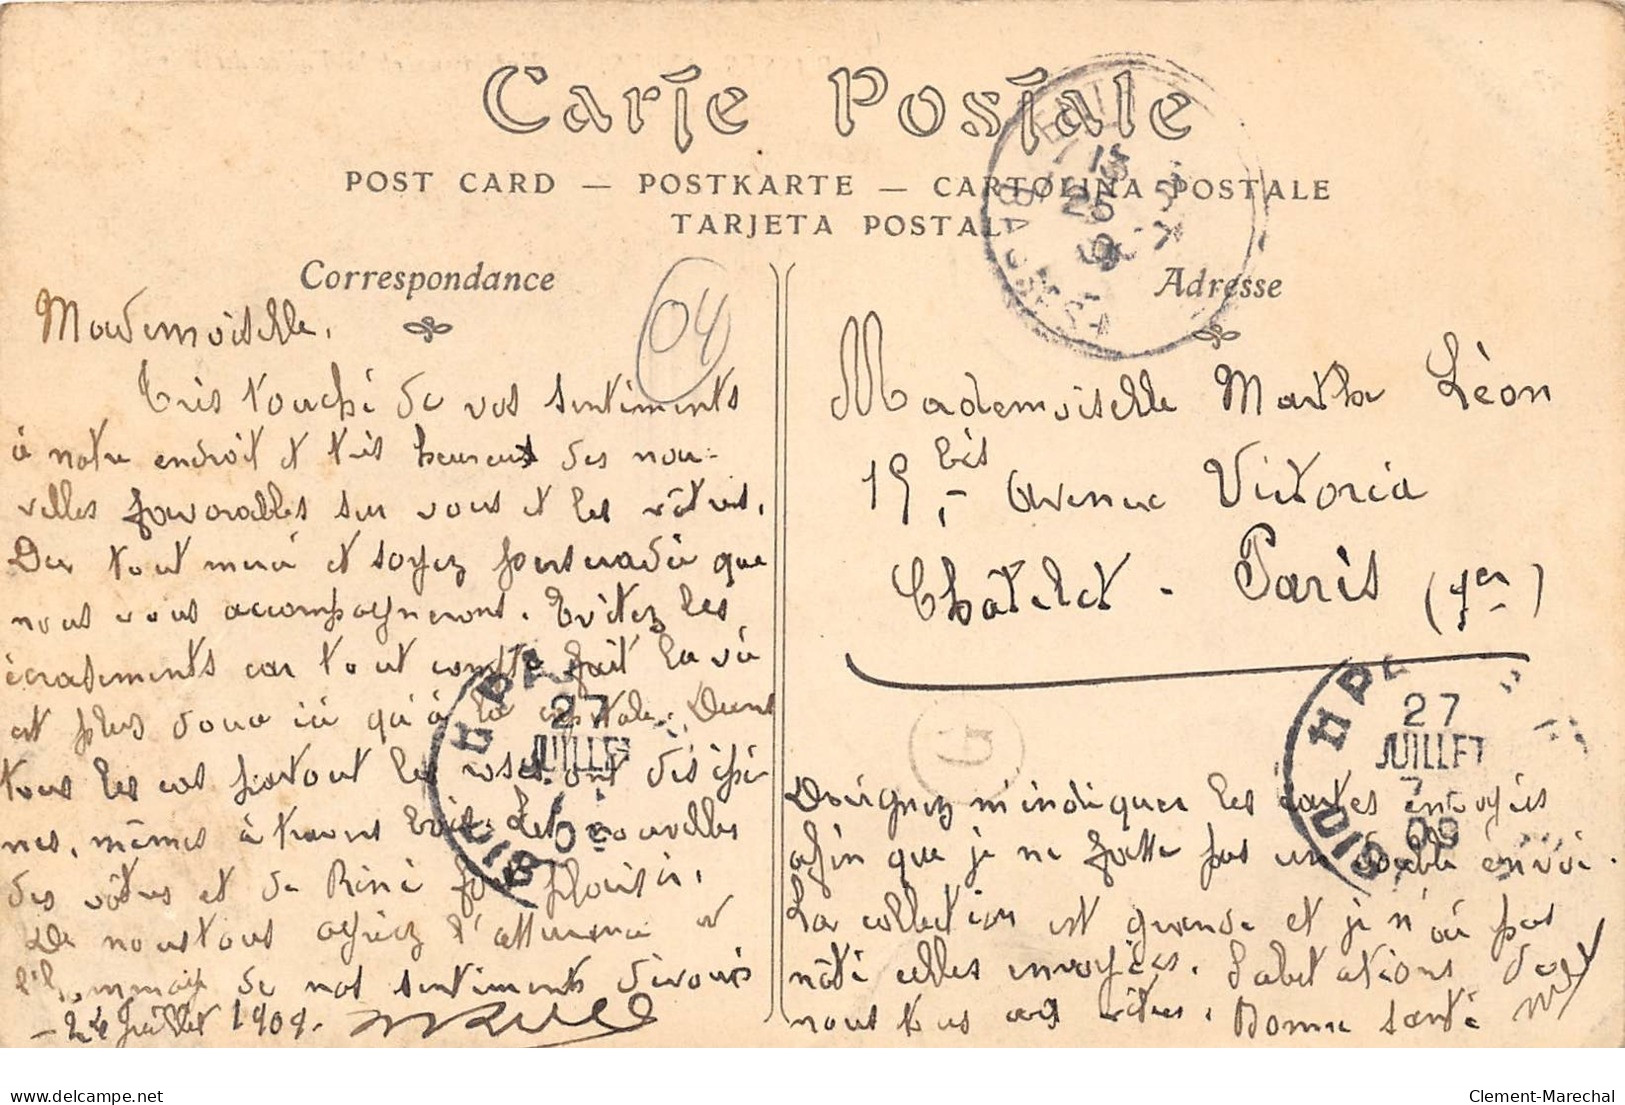 Carte Postale
POST CARD — POSTKARTE — CARTOLINA POSTALE
TARJETA POSTAL
Correspondance
Adresse
04
Mademoiselle.
Très touché de vos sentiments
à notre endroit et très heureux des nou-
velles favorables sur vous et les vôtres.
De tout merci et soyez persuadée que
nous vous accompagnerons. Evitez les
écrasements car tout compte fait la vie
est plus douce ici qu'à la capitale. Dans
tous les cas partout les roses ont des épi-
nes, mêmes à travers Les nouvelles
des vôtres et de René font plaisir.
De nous tous agréez l'assurance et
l'hommage de nos sentiments dévoués
- 24 Juillet 1909.
Mademoiselle Marthe Léon
15 bis Avenue Victoria
Châtelet - Paris (1er)
Daignez m'indiquer les cartes envoyées
afin que je ne fasse pas un double envoi.
La collection est grande et je n'ai pas
noté celles envoyées. Salutations de
nous tous aux vôtres. Bonne santé
27
JUILLET
09
27
JUILLET
09
G
Clement-Marechal